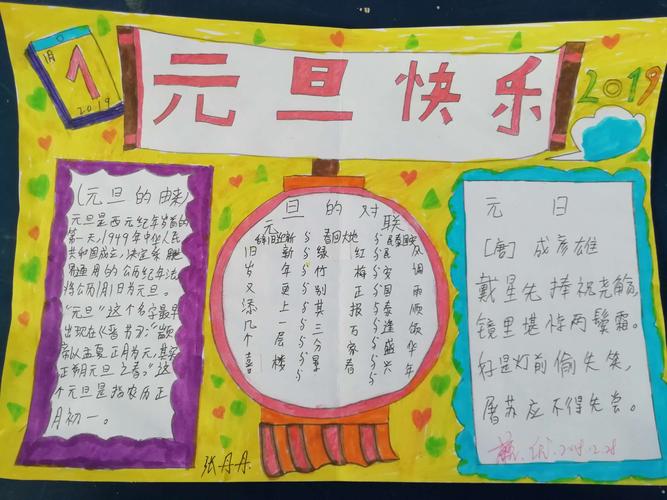 1月
1
2019
元旦快乐
2019
(元旦的由来)
元旦是西元纪年岁首的
第一天,1949年中华人民
共和国成立,决定采用世
界通用的公历纪年法
将公历1月1日为元旦。
"元旦"这个名字最早
出现在《晋书》:"颛
帝以孟夏正月为元,其实
正朔元旦之春。"这
个元旦是指农历正
月初一。
元旦的对联
旧岁又添几个喜
新年更上一层楼
绿竹别其三分景
红梅正报万家春
春回大地
民安国泰逢盛兴
风调雨顺饭华年
元日
[唐]成彦雄
戴星先捧祝尧觞,
镜里堪惊两鬓霜。
好是灯前偷失笑,
屠苏应不得先尝。
张丹丹